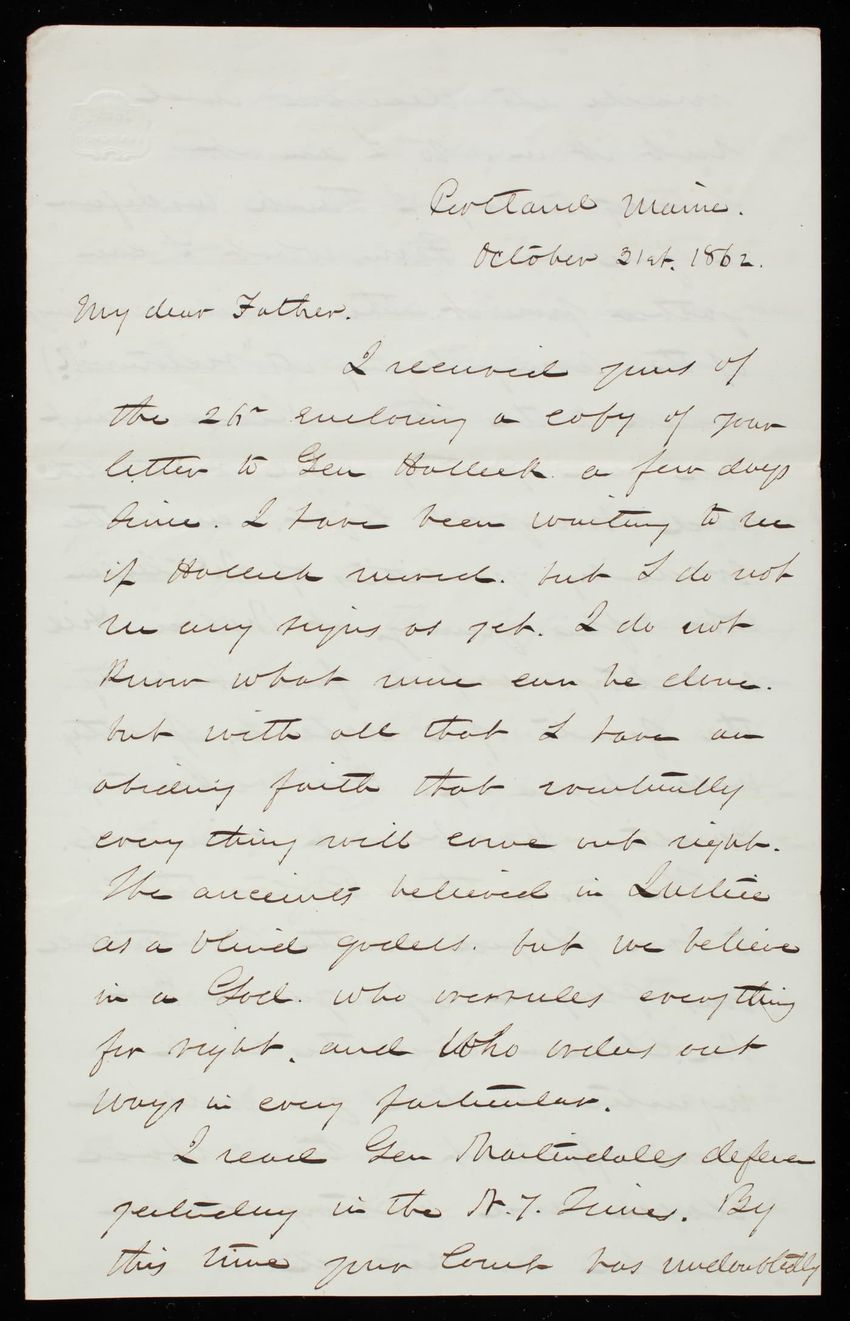 Portland Maine.
October 31st. 1862.
My dear Father.
I received yours of
the 25th enclosing a copy of your
letter to Gen Halleck a few days
since. I have been waiting to see
if Halleck moved. but I do not
see any signs as yet. I do not
know what more can be done.
but with all that I have an
abiding faith that eventually
every thing will come out right.
The ancients believed in Justice
as a blind godess. but we believe
in a God. who overrules everything
for right. and Who orders out
ways in every particular.
I read Gen Martindales defence
yesterday in the N.Y. Times. By
this time your Court has undoubtedly